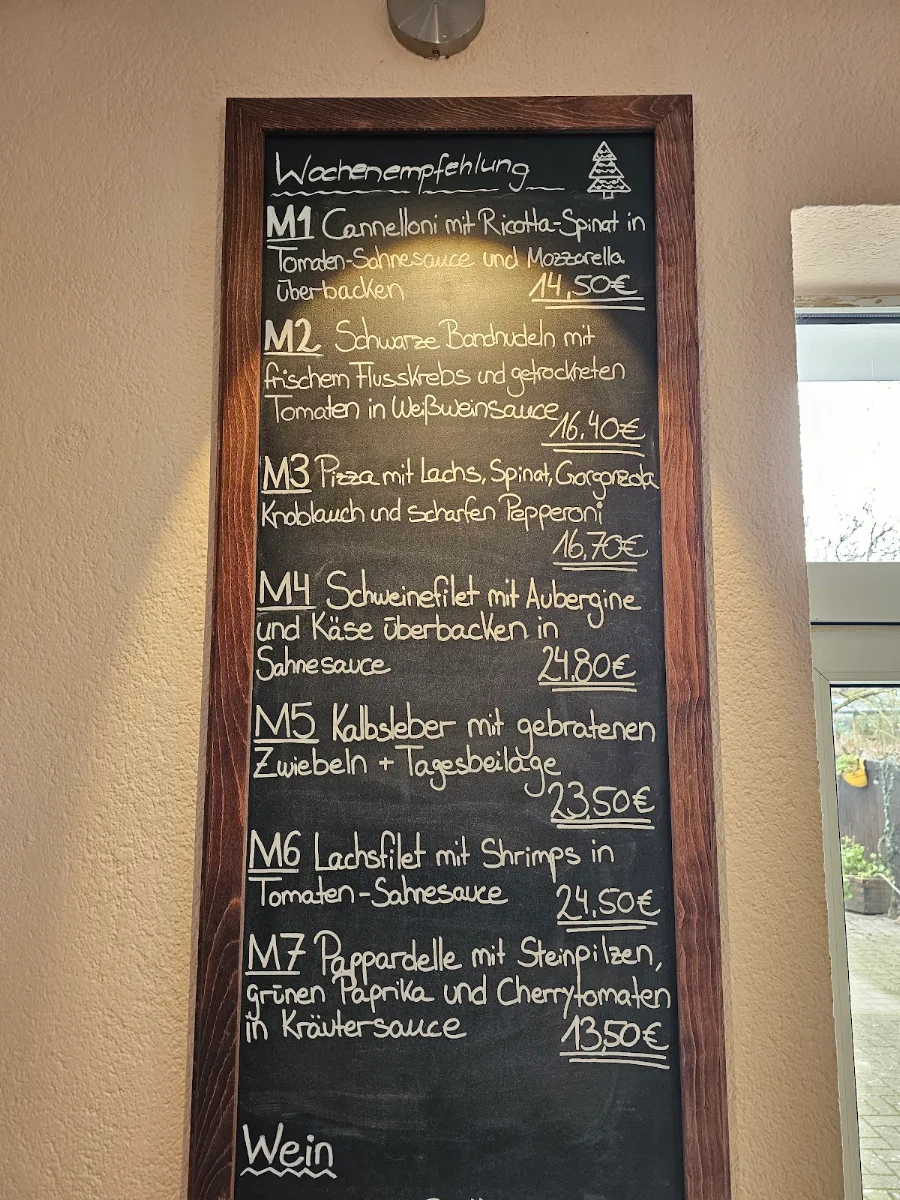 Wochenempfehlung
M1 Cannelloni mit Ricotta-Spinat in
Tomaten-Sahnesauce und Mozzarella
überbacken 14,50€
M2 Schwarze Bandnudeln mit
frischem Flusskrebs und getrockneten
Tomaten in Weißweinsauce
16,40€
M3 Pizza mit Lachs, Spinat, Gorgonzola
Knoblauch und scharfen Pepperoni
16,70€
M4 Schweinefilet mit Aubergine
und Käse überbacken in
Sahnesauce 24,80€
M5 Kalbsleber mit gebratenen
Zwiebeln + Tagesbeilage
23,50€
M6 Lachsfilet mit Shrimps in
Tomaten-Sahnesauce 24,50€
M7 Pappardelle mit Steinpilzen,
grünen Paprika und Cherrytomaten
in Kräutersauce 13,50€
Wein